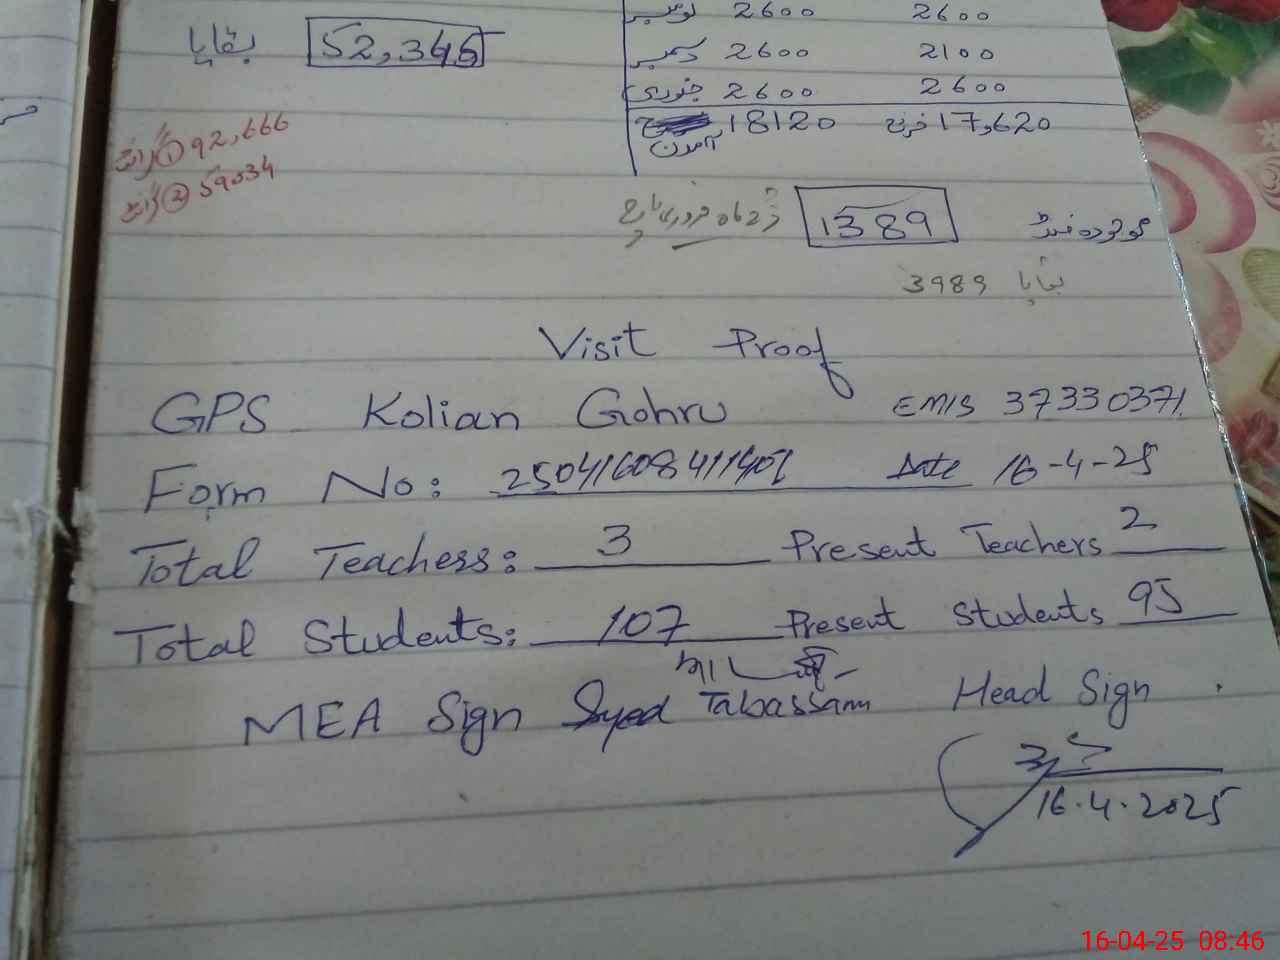 نومبر 2600 2600
بقایا 52,345
دسمبر 2600 2100
جنوری 2600 2600
آمدن 18120 خرچ 17,620
گرانٹ ① 92,666
گرانٹ ② 59034
1389 موجودہ فنڈ
بقایا 3989
Visit Proof
GPS Kolian Gohru EMIS 37330371
Form No: 250416084111401 Date 16-4-25
Total Teachers: 3 Present Teachers 2
Total Students: 107 Present Students 95
MEA Sign Syed Tabassam Head Sign
16.4.2025
16-04-25 08:46